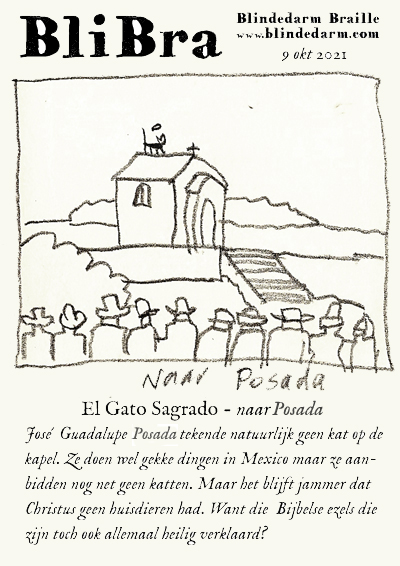 BliBra
Blindedarm Braille
www.blindedarm.com
9 okt 2021
Naar Posada
El Gato Sagrado - naar Posada
José Guadalupe Posada tekende natuurlijk geen kat op de
kapel. Ze doen wel gekke dingen in Mexico maar ze aan-
bidden nog net geen katten. Maar het blijft jammer dat
Christus geen huisdieren had. Want die Bijbelse ezels die
zijn toch ook allemaal heilig verklaard?